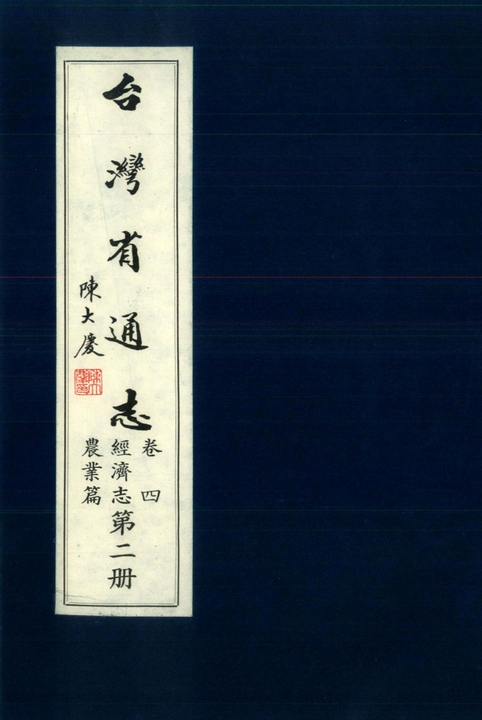 台灣省通志
陳大慶
卷四
經濟志第二册
農業篇